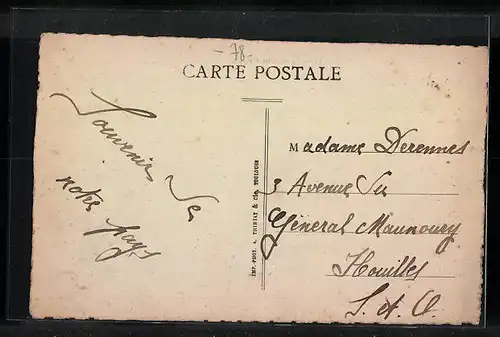 - 78 -
CARTE POSTALE
Souvenir de
notre pays
Madame Derennes
3 Avenue du
Général Maunoury
Houilles
S. et O.
IMP.-PHOT. A. THIRIAT & Cie, TOULOUSE